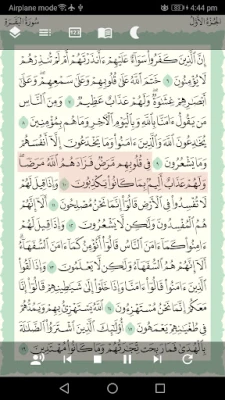 Airplane mode 4:44 pm
سُورَةُ البَقَرَةِ الجُزْءُ الأَوَّلُ
إِنَّ ٱلَّذِينَ كَفَرُوا۟ سَوَآءٌ عَلَيْهِمْ ءَأَنذَرْتَهُمْ أَمْ لَمْ تُنذِرْهُمْ
لَا يُؤْمِنُونَ ٦ خَتَمَ ٱللَّهُ عَلَىٰ قُلُوبِهِمْ وَعَلَىٰ سَمْعِهِمْ وَعَلَىٰٓ
أَبْصَٰرِهِمْ غِشَٰوَةٌ وَلَهُمْ عَذَابٌ عَظِيمٌ ٧ وَمِنَ ٱلنَّاسِ
مَن يَقُولُ ءَامَنَّا بِٱللَّهِ وَبِٱلْيَوْمِ ٱلْءَاخِرِ وَمَا هُم بِمُؤْمِنِينَ ٨
يُخَٰدِعُونَ ٱللَّهَ وَٱلَّذِينَ ءَامَنُوا۟ وَمَا يَخْدَعُونَ إِلَّآ أَنفُسَهُمْ
وَمَا يَشْعُرُونَ ٩ فِى قُلُوبِهِم مَّرَضٌ فَزَادَهُمُ ٱللَّهُ مَرَضًا
وَلَهُمْ عَذَابٌ أَلِيمٌۢ بِمَا كَانُوا۟ يَكْذِبُونَ ١٠ وَإِذَا قِيلَ لَهُمْ
لَا تُفْسِدُوا۟ فِى ٱلْأَرْضِ قَالُوٓا۟ إِنَّمَا نَحْنُ مُصْلِحُونَ ١١ أَلَآ إِنَّهُمْ
هُمُ ٱلْمُفْسِدُونَ وَلَٰكِن لَّا يَشْعُرُونَ ١٢ وَإِذَا قِيلَ لَهُمْ
ءَامِنُوا۟ كَمَآ ءَامَنَ ٱلنَّاسُ قَالُوٓا۟ أَنُؤْمِنُ كَمَآ ءَامَنَ ٱلسُّفَهَآءُ
أَلَآ إِنَّهُمْ هُمُ ٱلسُّفَهَآءُ وَلَٰكِن لَّا يَعْلَمُونَ ١٣ وَإِذَا لَقُوا۟
ٱلَّذِينَ ءَامَنُوا۟ قَالُوٓا۟ ءَامَنَّا وَإِذَا خَلَوْا۟ إِلَىٰ شَيَٰطِينِهِمْ قَالُوٓا۟ إِنَّا
مَعَكُمْ إِنَّمَا نَحْنُ مُسْتَهْزِءُونَ ١٤ ٱللَّهُ يَسْتَهْزِئُ بِهِمْ وَيَمُدُّهُمْ
فِى طُغْيَٰنِهِمْ يَعْمَهُونَ ١٥ أُو۟لَٰٓئِكَ ٱلَّذِينَ ٱشْتَرَوُا۟ ٱلضَّلَٰلَةَ
بِٱلْهُدَىٰ فَمَا رَبِحَت تِّجَٰرَتُهُمْ وَمَا كَانُوا۟ مُهْتَدِينَ ١٦